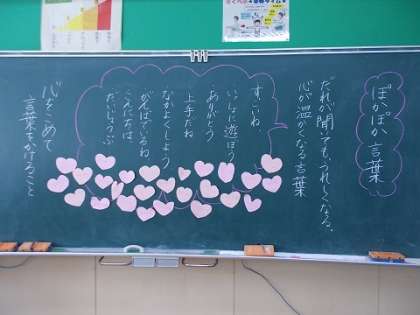 ぽかぽか言葉
だれが聞いてもうれしくなる、
心が温かくなる言葉
すごいね、
いっしょに遊ぼう
ありがとう
上手だね
なかよくしよう
がんばっているね
こんにちは
だいじょうぶ
心をこめて
言葉をかけること